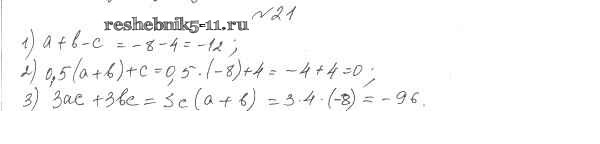 №21
reshebnik5-11.ru
1) a+b-c = -8-4 = -12;
2) 0,5(a+b)+c = 0,5·(-8)+4 = -4+4=0;
3) 3ac+3bc = 3c(a+b) = 3·4·(-8) = -96.